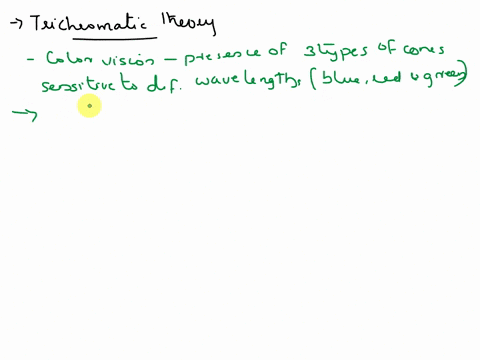 → Trichromatic theory
- Color vision - presence of 3 types of cones
sensitive to dif. wavelengths (blue, red & green)
→